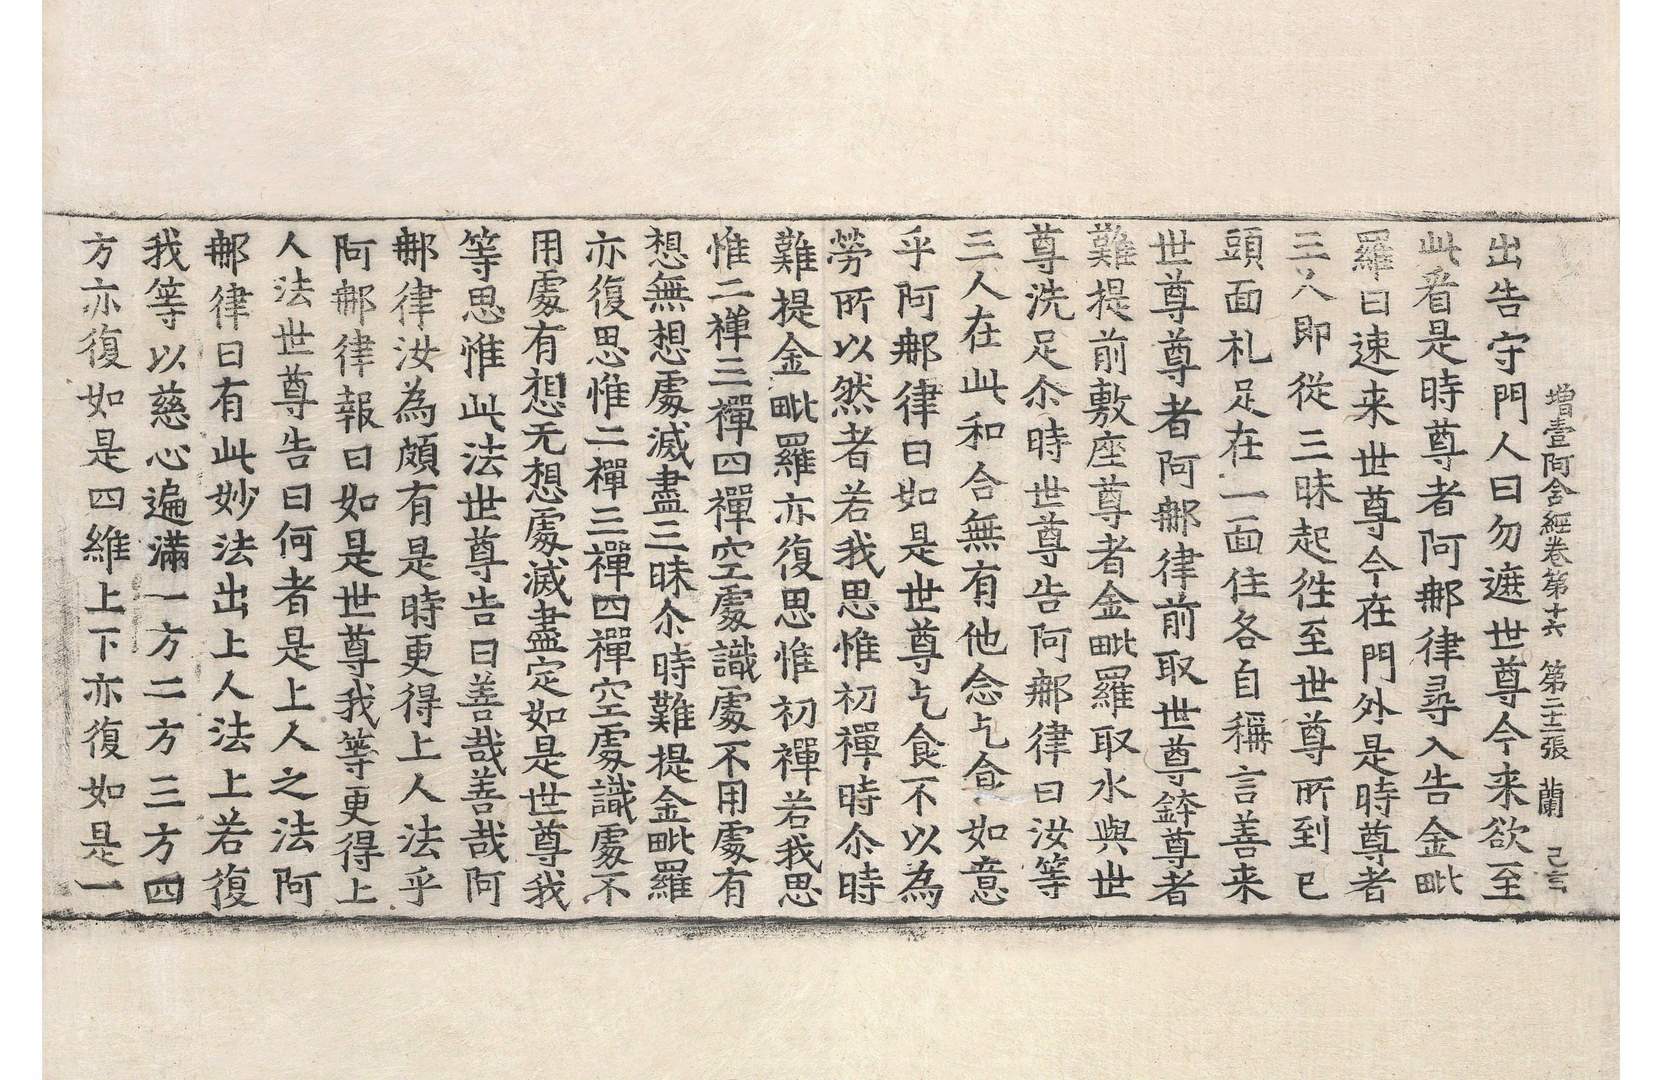 增壹阿含經卷第十六 第二十二張 蘭
出告守門人曰勿遮世尊今来欲至
此看是時尊者阿那律尋入告金毗
羅曰速来世尊今在門外是時尊者
三人即從三昧起往至世尊所到已
頭面礼足在一面住各自稱言善来
世尊尊者阿那律前取世尊鉢尊者
難提前敷座尊者金毗羅取水與世
尊洗足尒時世尊告阿那律曰汝等
三人在此和合無有他念乞食如意
乎阿那律曰如是世尊乞食不以為
勞所以然者若我思惟初禪時尒時
難提金毗羅亦復思惟初禪若我思
惟二禪三禪四禪空處識處不用處有
想無想處滅盡三昧尒時難提金毗羅
亦復思惟二禪三禪四禪空處識處不
用處有想无想處滅盡定如是世尊我
等思惟此法世尊告曰善哉善哉阿
那律汝為頗有是時更得上人法乎
阿那律報曰如是世尊我等更得上
人法世尊告曰何者是上人之法阿
那律曰有此妙法出上人法上若復
我等以慈心遍滿一方二方三方四
方亦復如是四維上下亦復如是一